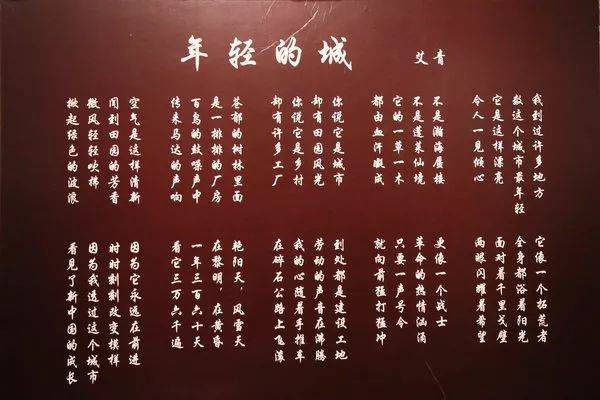 年轻的城
艾青
我到过许多地方
数这个城市最年轻
它是这样漂亮
令人一见倾心
不是瀚海蜃楼
不是蓬莱仙境
它的一草一木
都由血汗凝成
你说它是城市
却有田园风光
你说它是乡村
却有许多工厂
苍郁的树林里面
是一排排的厂房
百鸟的鼓噪声中
传来马达的声响
空气是这样清新
闻到田园的芳香
微风轻轻吹拂
掀起绿色的波浪
它像一个拓荒者
全身都浴着阳光
面对着千里戈壁
两眼闪耀着希望
更像一个战士
革命的热情汹涌
只要一声号令
就向前猛打猛冲
到处都是建设工地
劳动的声音在沸腾
我的心随着手推车
在碎石公路上飞滚
艳阳天，风雪天
在黎明，在黄昏
一年三百六十天
看它三万六千遍
因为它永远在前进
时时刻刻改变模样
因为我透过这个城市
看见了新中国的成长